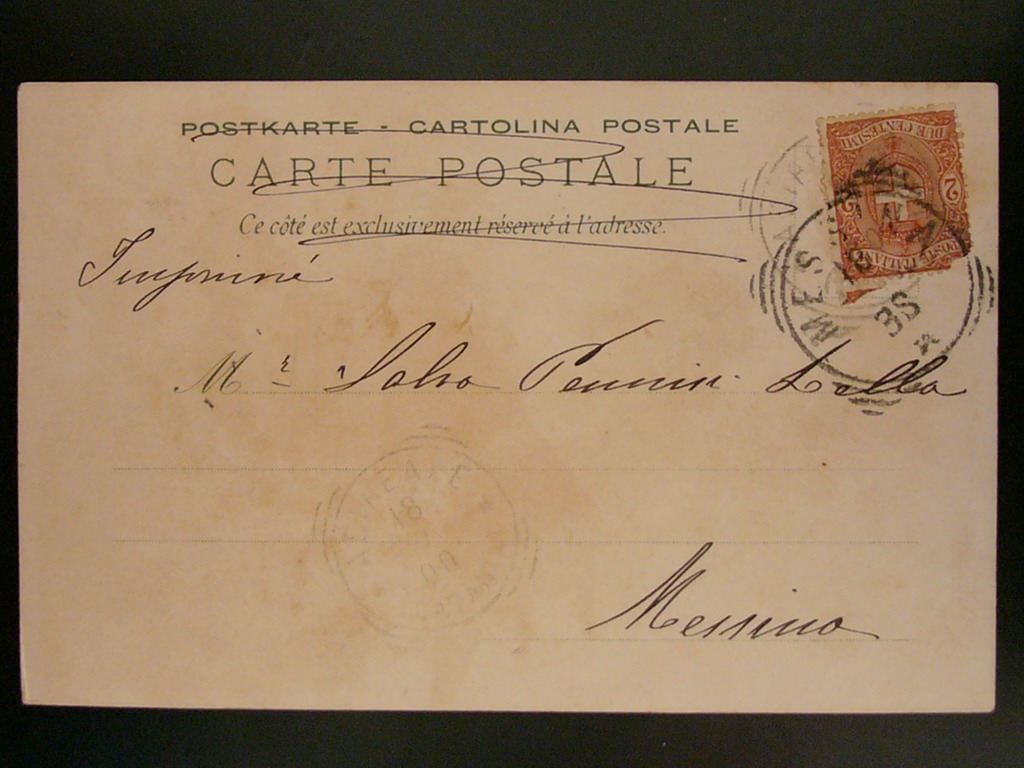 POSTKARTE - CARTOLINA POSTALE
CARTE POSTALE
Ce côté est exclusivement réservé à l'adresse.
DUE CENTESIMI
2
2
POSTE ITALIANE
MESSINA
Imprimé
Mr Salvo Lella
ACIREALE
18
00
Messina